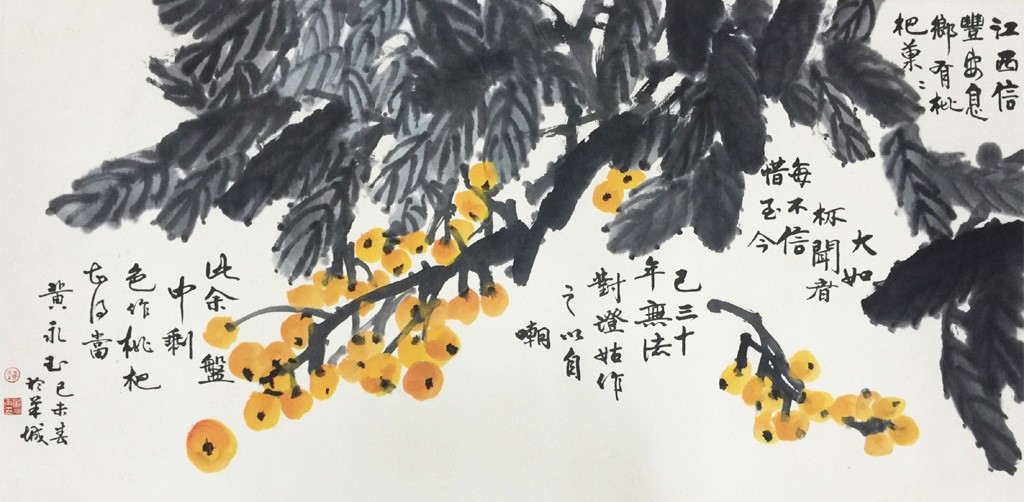 江西信
豐安息
鄉有枇
杷菓〻
大如
杯聞者
每不信
惜至今
已三十
年無法
對證姑作
之以自
嘲
此余盤
中剩
色作枇杷
得當
黄永玉己未春
於羊城